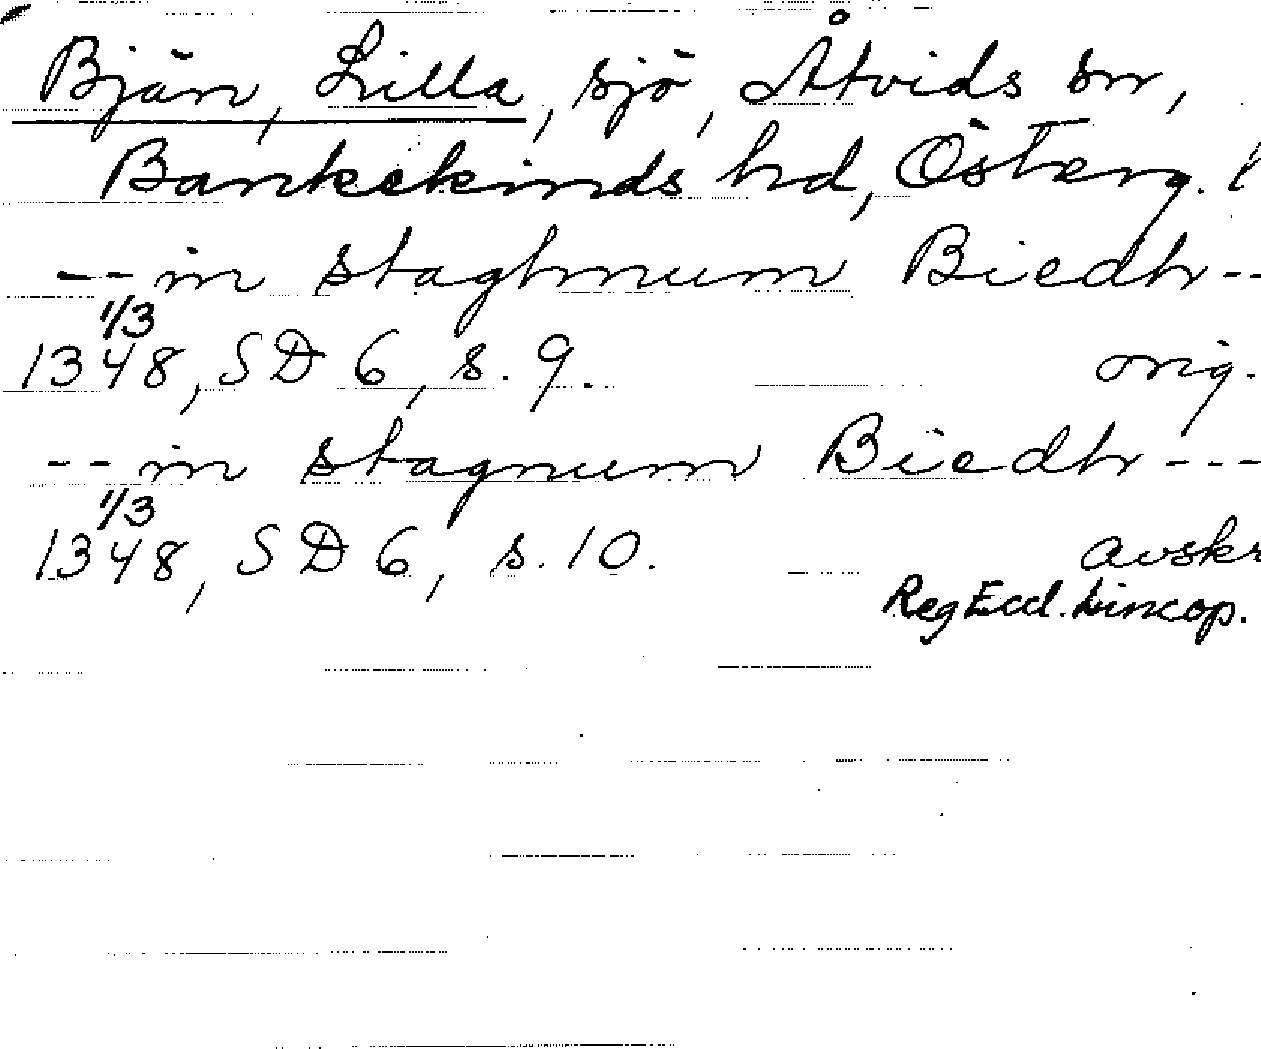 Bjän, Lilla, sjö, Åtvids sn,
Bankekinds hd, Österg. l
-- in staghnum Biedh --
1/3
1348, SD 6, s. 9. orig.
-- in stagnum Biedh ---
1/3
1348, SD 6, s. 10. avskr
Reg Eccl. Lincop.